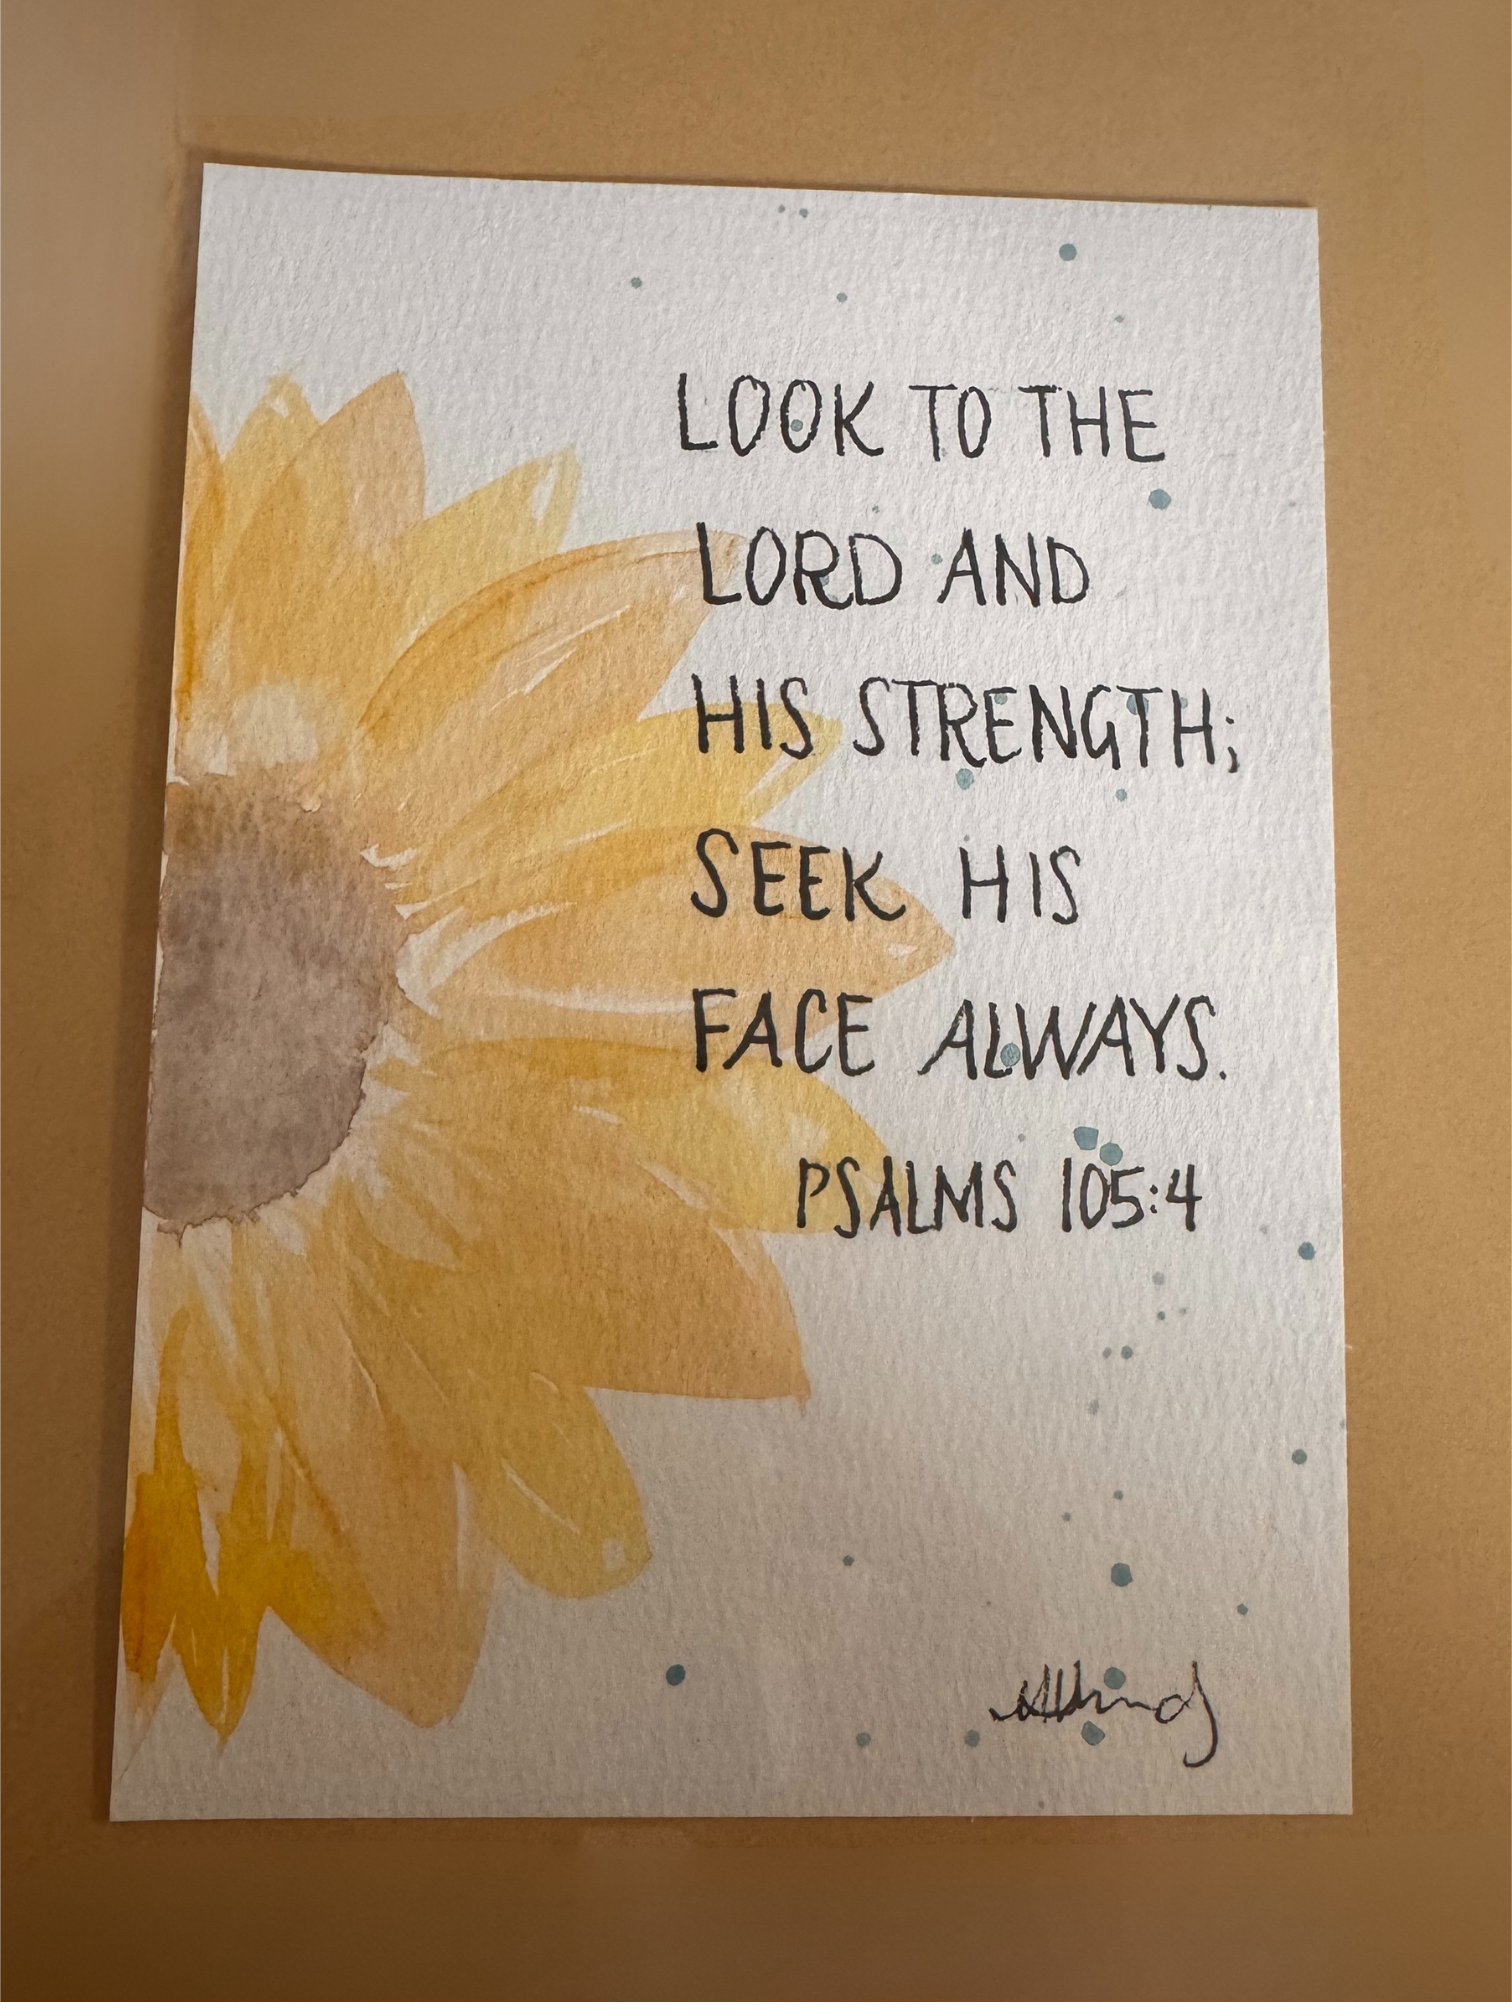 LOOK TO THE
LORD AND
HIS STRENGTH;
SEEK HIS
FACE ALWAYS.
PSALMS 105:4